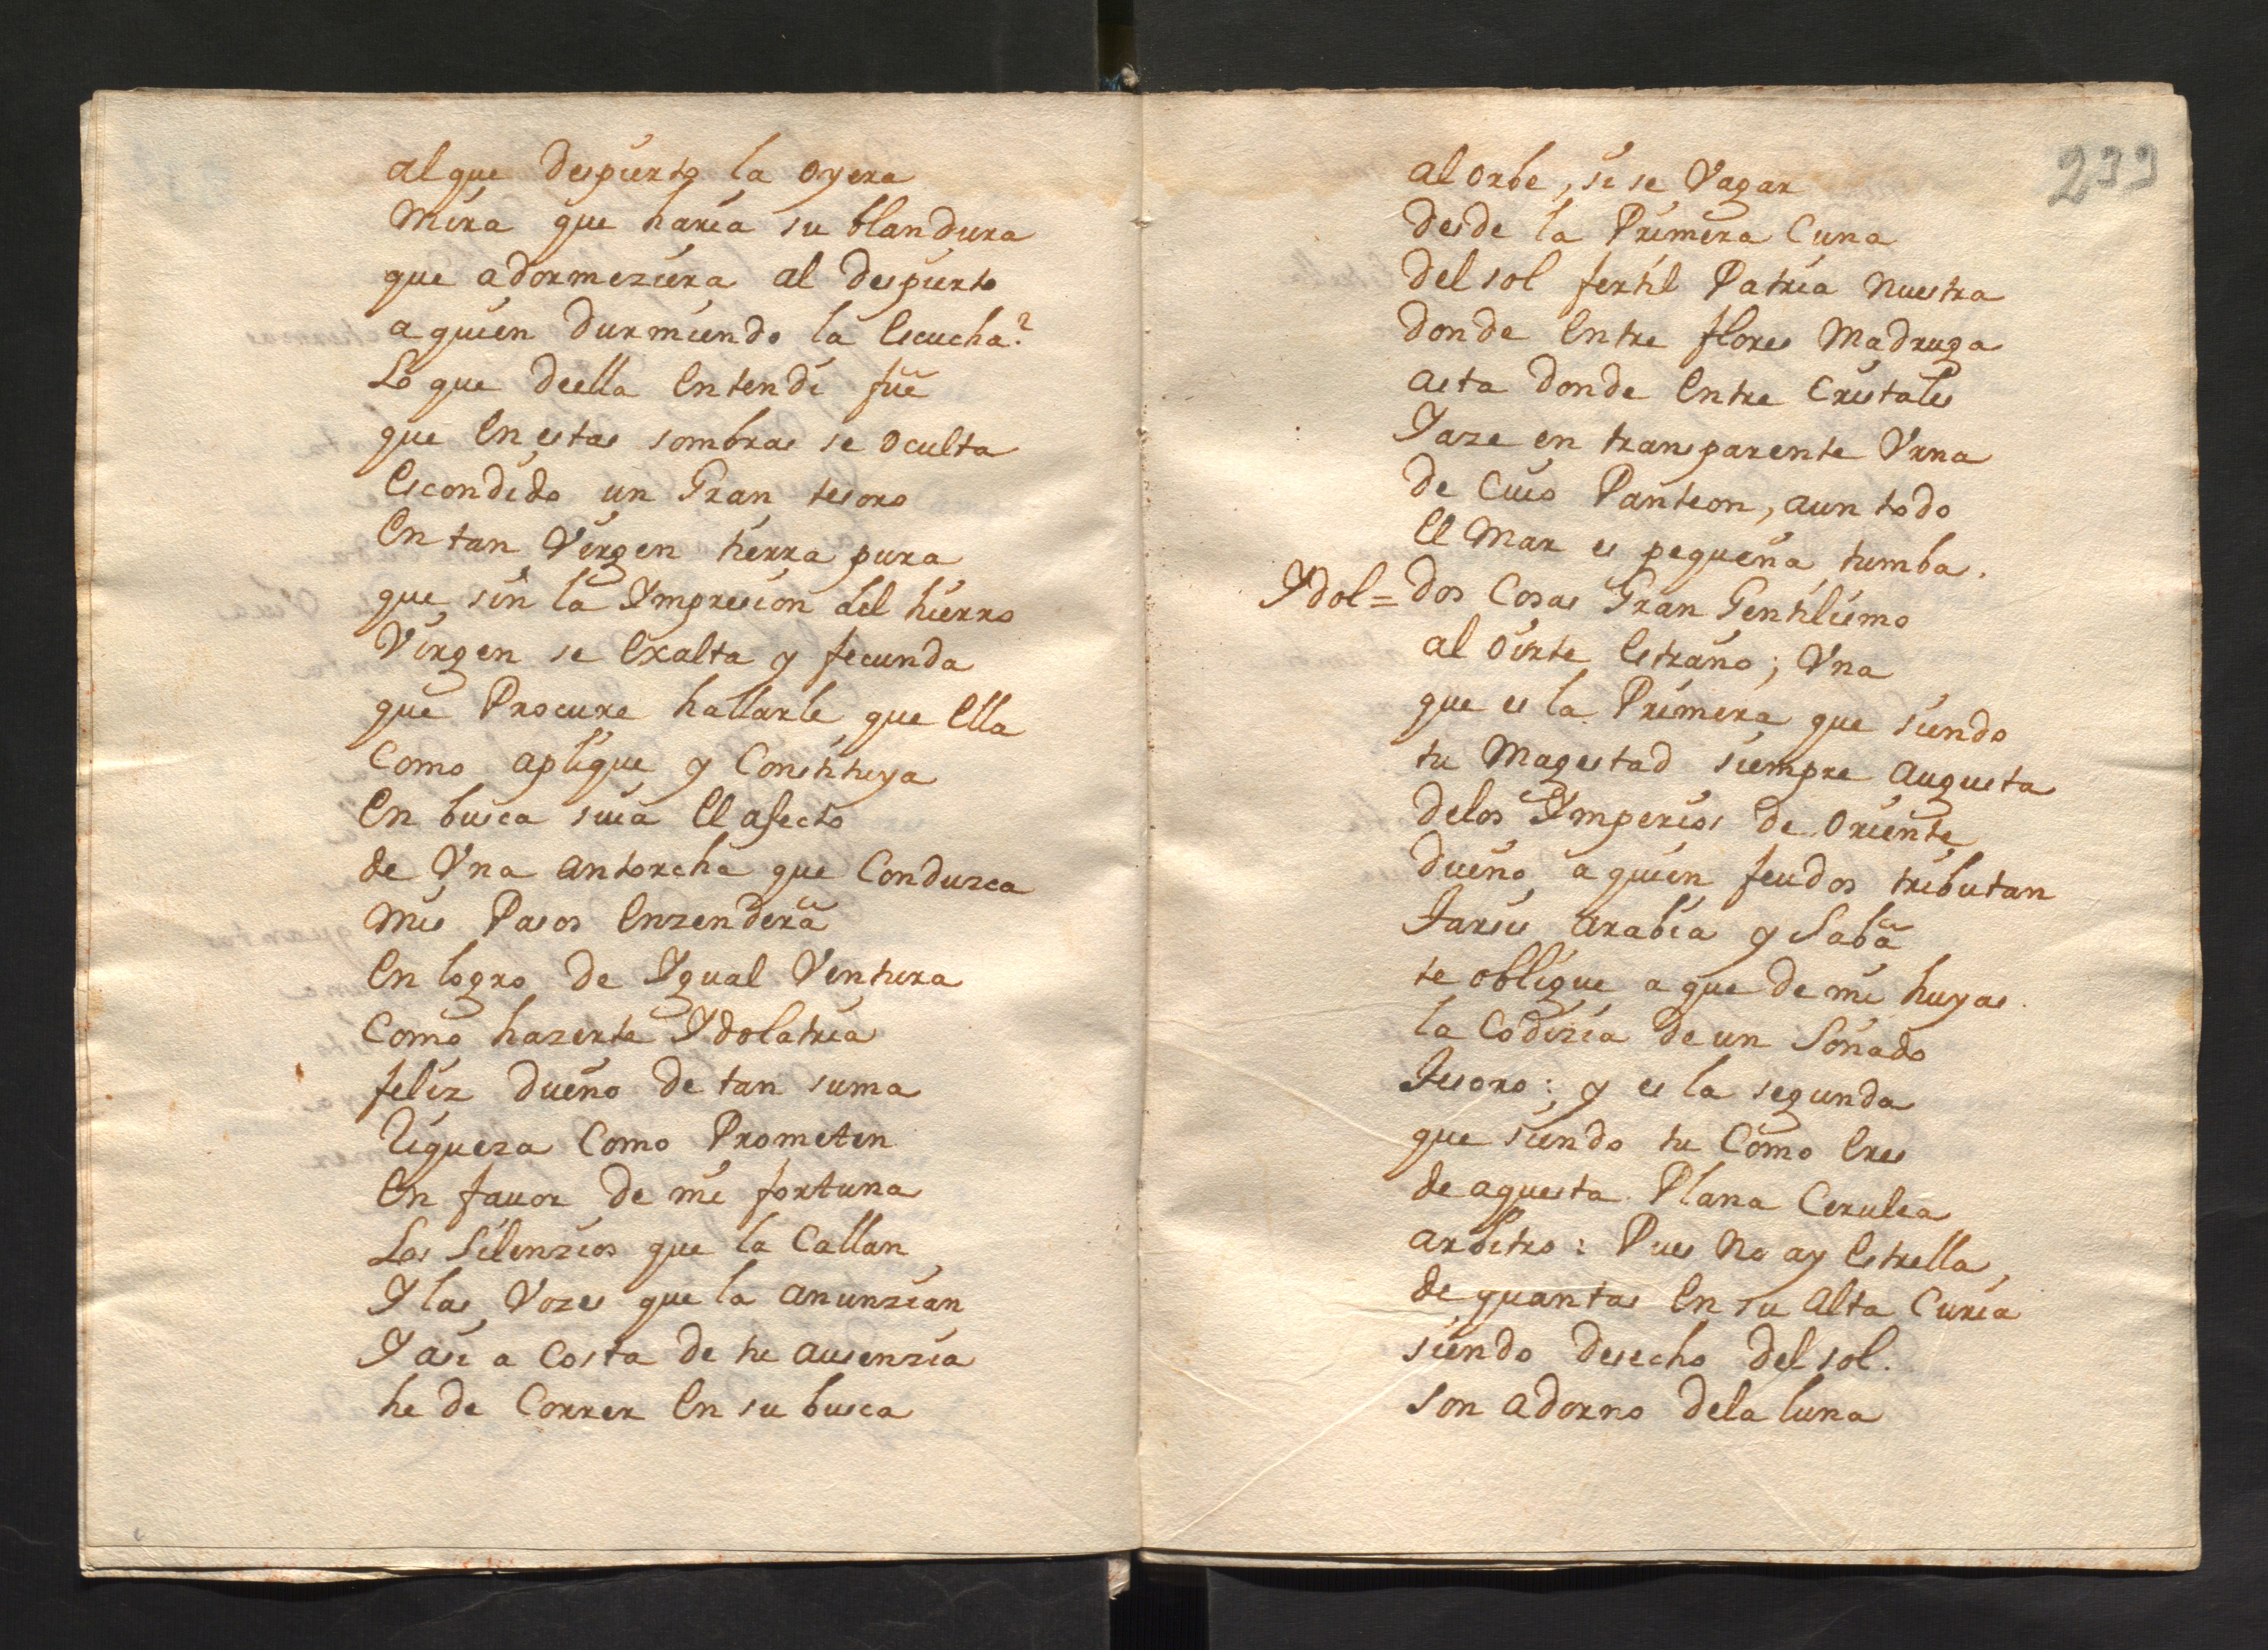 al que despierto la oyera
Mira que haria su blandura
que adormeziera al despierto
a quien durmiendo la Escucha?
Lo que della Entendi fuè
que En estas sombras se oculta
Escondido un Gran tesoro
En tan Virgen tierra pura
que sin la Ympresion del hierro
Virgen se Exalta y fecunda
que Procure hallarle que Ella
Como aplique y Constituya
En busca suia El afecto
de Vna antorcha que Conduzca
Mis Pasos Enzenderà
En logro de Ygual Ventura
Como hazerte Ydolatria
feliz dueño de tan suma
Riqueza Como Prometen
En fauor de mi fortuna
Los Silenzios que la Callan
Y las Vozes que la anunzian
Y asi a Costa de tu ausenzia
he de Correr En su busca
233
al orbe, si se Vagar
desde la Primera Cuna
del sol fertil Patria Nuestra
donde Entre flores Madruga
asta donde Entre Cristales
Yaze en transparente Vrna
de Cuio Panteon, aun todo
El Mar es pequeña tumba.
Ydol= dos Cosas Gran Gentilismo
al oirte Estraño; Vna
que es la Primera que siendo
tu Magestad siempre Augusta
delos Ymperios de Oriente
dueño a quien feudos tributan
Tarsis Arabia y Sabà
te oblique a que de mi huyas
la Codizia de un Soñado
Tesoro: y es la segunda
que siendo tu Como Eres
de aquesta Plana Cerulea
arbitro: Pues No ay Estrella,
de quantas En su Alta Curia
siendo desecho del sol.
son adorno dela luna